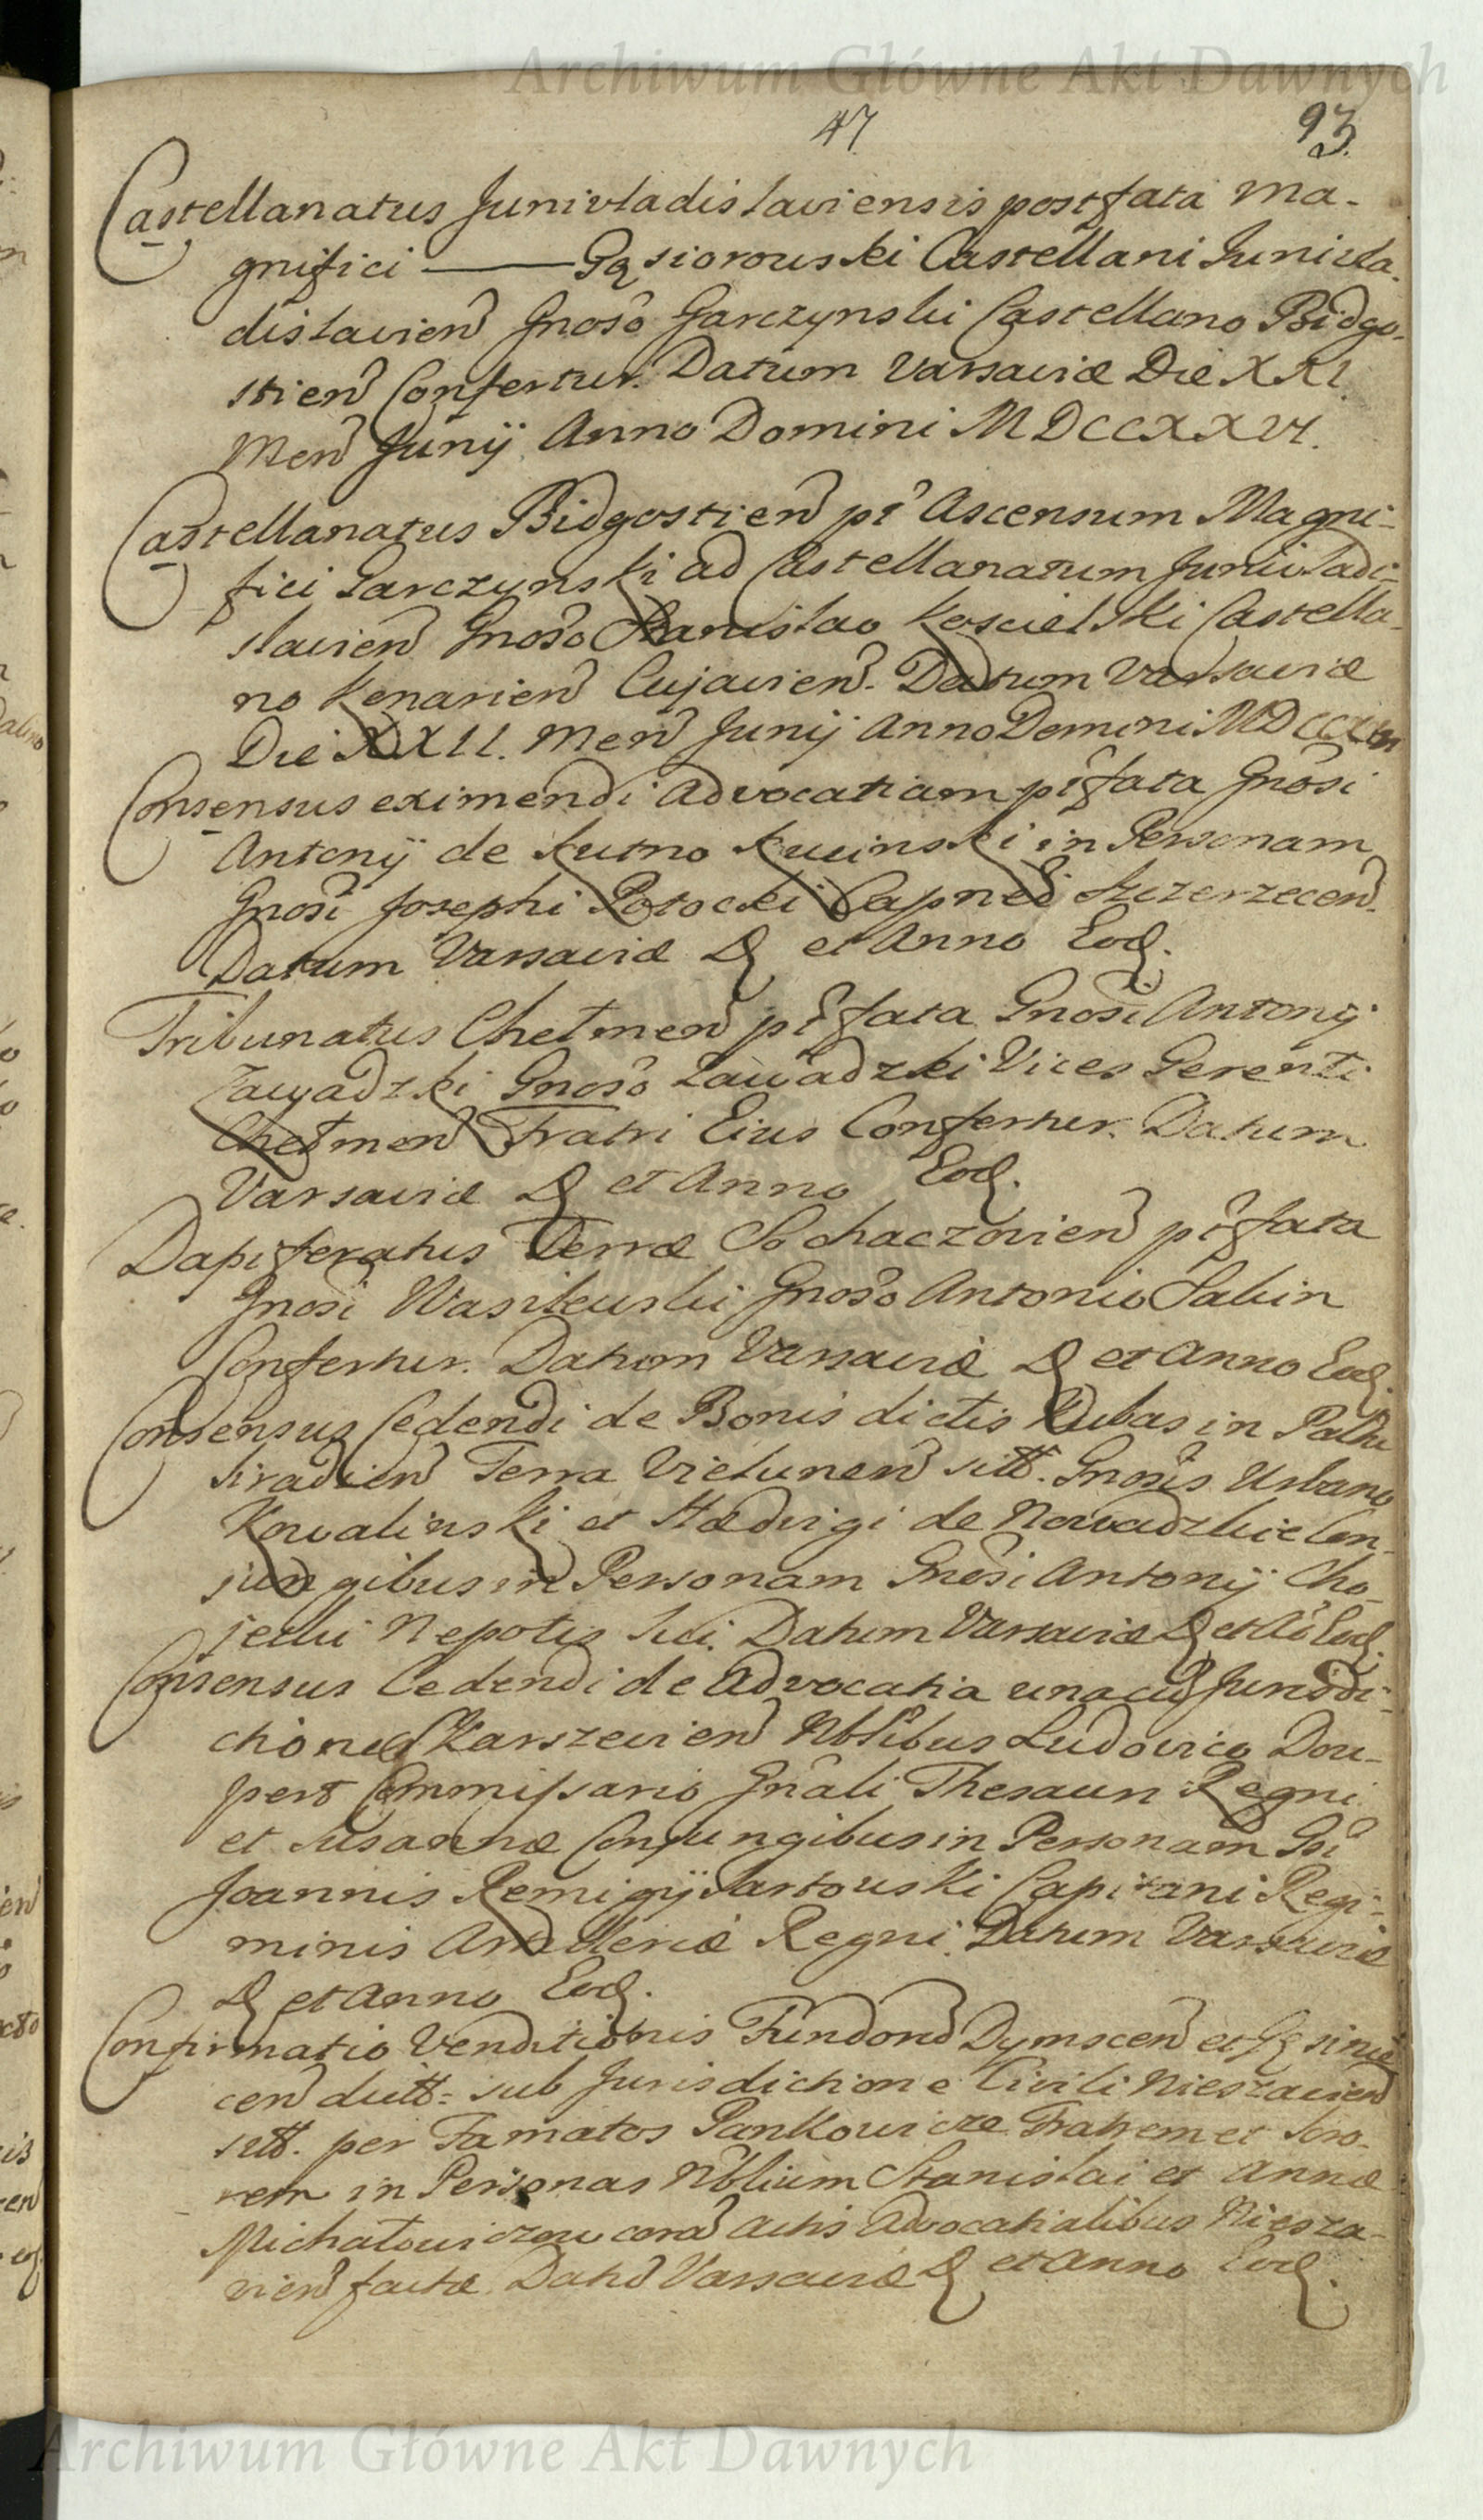 Archiwum Główne Akt Dawnych
47. 93.
Castellanatus Junivladislaviensis post fata Ma-
gnifici ——— Gąsiorowski Castellani Junivla-
dislavien Gnoso Garczynski Castellano Bidgo-
stien Confertur. Datum Varsaviæ Die XXI.
Men Junij Anno Domini MDCCXXVI.
Castellanatus Bidgostien pt Ascensum Magni-
fici Garczynski ad Castellanatum Junivladi-
slavien Gnoso Stanislao Koscielski Castella-
no Konarien Cujavien. Datum Varsaviæ
Die XXII. Men Junij Anno Domini
Consensus eximendi Advocatiam pt fata Gnosi
Antonij de Kutno Kucinski in Personam
Gnosi Josephi Potocki Capnei Szczerzecen.
Datum Varsaviæ D et Anno Eod.
Tribunatus Chełmen pt fata Gnosi Antonij
Zawadzki Gnoso Zawadzki Vices Gerenti
Chełmen Fratri Eius Confertur. Datum
Varsaviæ D et Anno Eod.
Dapiferatus Terræ Sochaczovien pt fata
Gnosi Wasilewski Gnoso Antonio Sakin
Confertur. Datum Varsaviæ D et Anno Eod.
Consensus Cedendi de Bonis dictis Dubas in Pathu
Siradien Terra Vielunen sitt. Gnosis Urbano
Kowalinski et Hædvigi de Con-
jungibus in Personam Gnosi Antonij Cho-
jecki Nepotis sui. Datum Varsaviæ D et Ao Eod.
Consensus Cedendi de Advocatia unacu Jurisdi-
ctione Skarszevien Nblibus Ludovico Dou-
pert Commissario Gnali Thesauri Regni
et Susannæ Conjungibus in Personam Gsi
Joannis Remigij Sartowski Capitani Regi-
minis Artilleriæ Regni. Datum Varsaviæ
D et Anno Eod.
Confirmatio Venditionis Fundoru Dymscen et
cen dictt: sub Jurisdictione Civili Nieszavien
sitt. per Famatos Pankowicze Fratrem et Soro-
rem in Personas Nblium Stanislai et Annæ
Michałowiczow cora Actis Advocatialibus Niesza-
vien factæ. Datu Varsaviæ D et Anno Eod.
Archiwum Główne Akt Dawnych